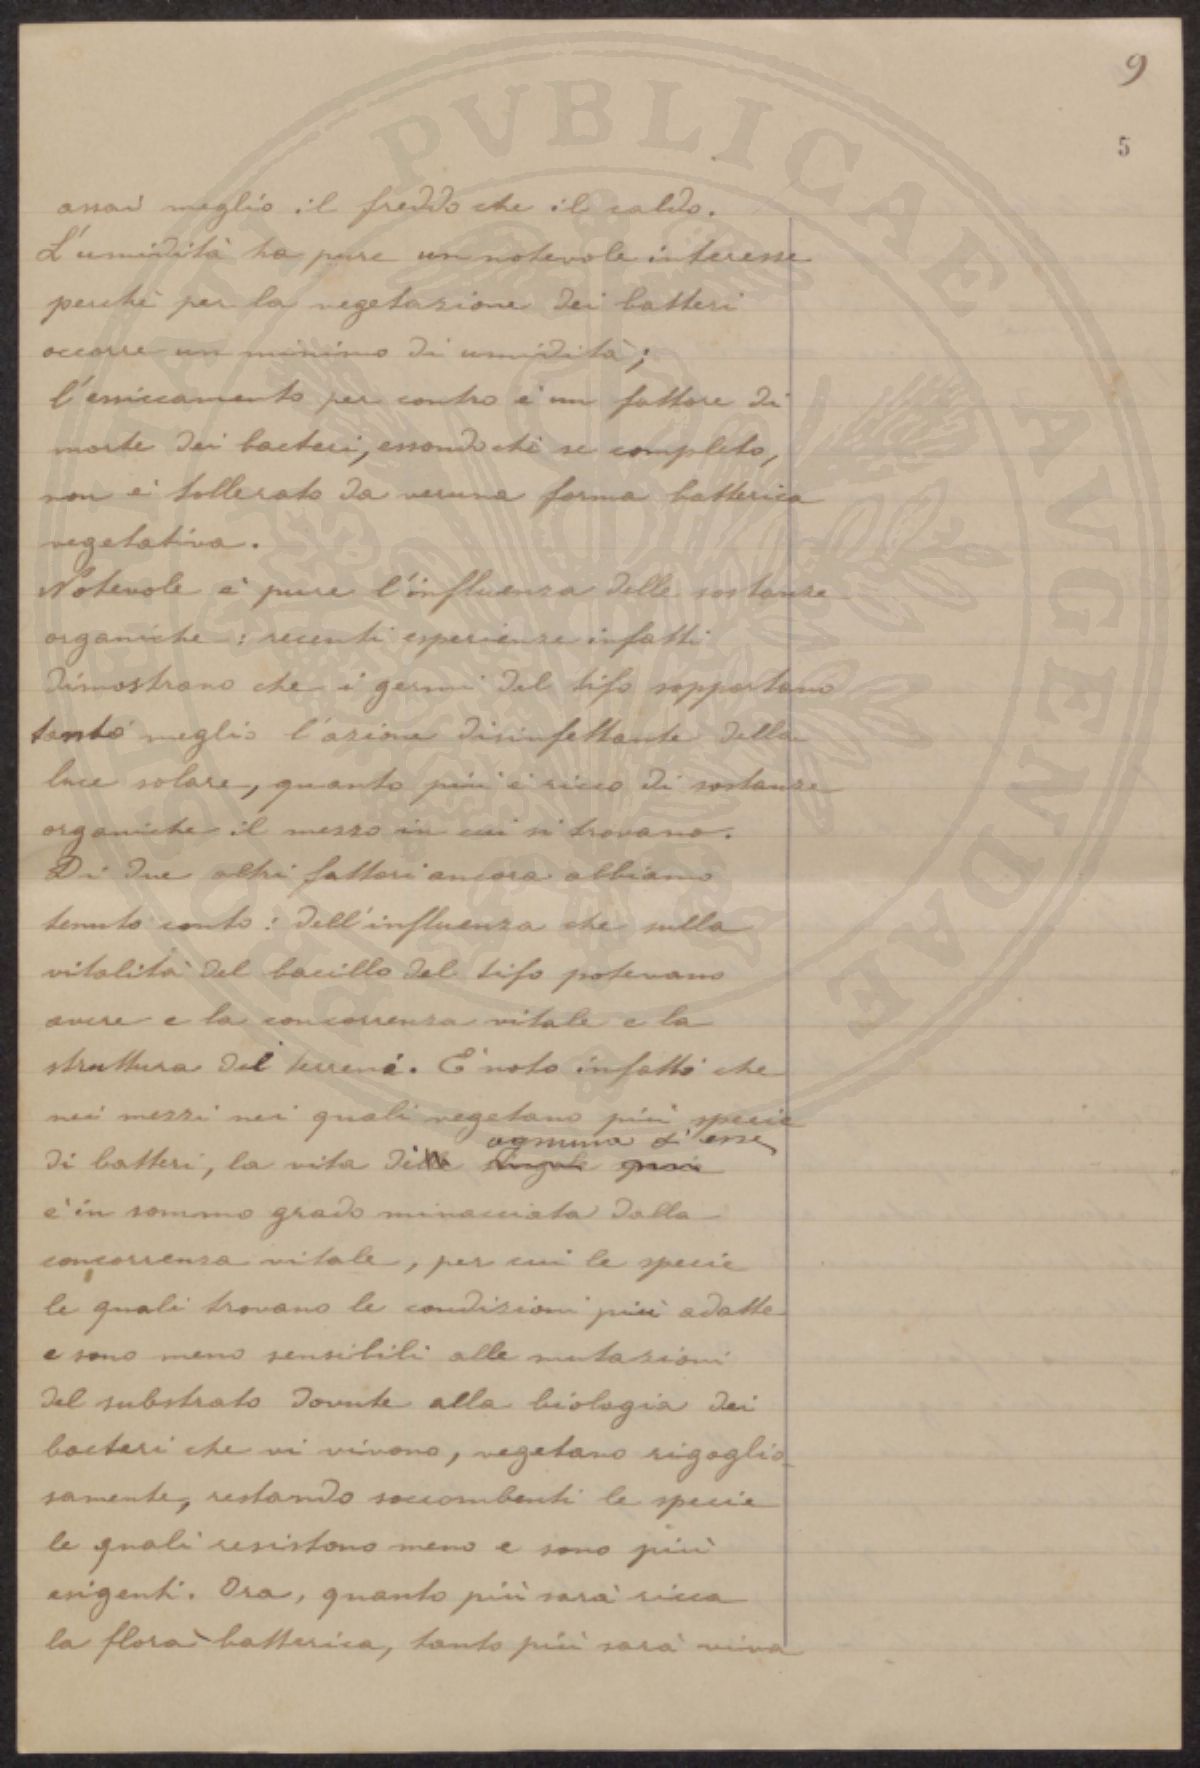 9
5
assai meglio il freddo che il caldo.
L'umidità ha pure un notevole interesse
perchè per la vegetazione dei batteri
occorre un minimo di umidità;
l'essiccamento per contro è un fattore di
morte dei bacteri, essendochè se completo,
non è tollerato da veruna forma batterica
vegetativa.
Notevole è pure l'influenza delle sostanze
organiche: recenti esperienze infatti
dimostrano che i germi del tifo sopportano
tanto meglio l'azione disinfettante della
luce solare, quanto più è ricco di sostanze
organiche il mezzo in cui si trovano.
Di due altri fattori ancora abbiamo
tenuto conto: dell'influenza che sulla
vitalità del bacillo del tifo potevano
avere e la concorrenza vitale e la
struttura dei terreni. È noto infatti che
nei mezzi nei quali vegetano più specie
ognuna d'esse
di batteri, la vita di singole
è in sommo grado minacciata dalla
concorrenza vitale, per cui le specie
le quali trovano le condizioni più adatte
e sono meno sensibili alle mutazioni
del substrato dovute alla biologia dei
bacteri che vi vivono, vegetano rigoglio-
samente, restando soccombenti le specie
le quali resistono meno e sono più
esigenti. Ora, quanto più sarà ricca
la flora batterica, tanto più sarà viva
PUBLICAE AVGENDAE